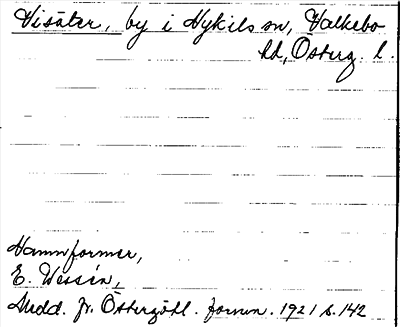 Visäter, by i Nykils sn, Valkebo
hd, Österg. l.
Namnformer,
E. Wessén,
Medd. fr. Östergötl. fornm. 1921 s. 142